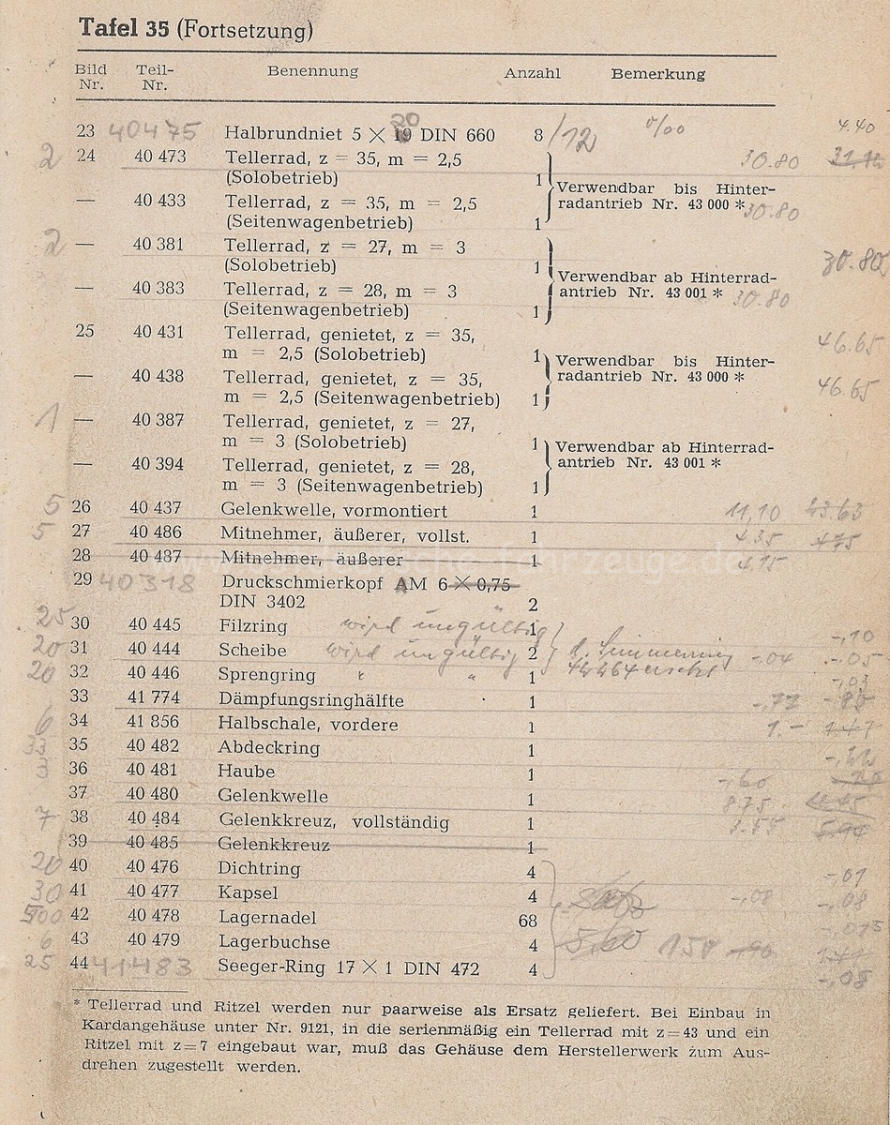 Tafel 35 (Fortsetzung)
Bild Nr. Teil-Nr. Benennung Anzahl Bemerkung
23 40475 Halbrundniet 5 × 19 20 DIN 660 8 /12 4.40
2 24 40 473 Tellerrad, z = 35, m = 2,5 30.80
(Solobetrieb) 1
Verwendbar bis Hinter-
— 40 433 Tellerrad, z = 35, m = 2,5 radantrieb Nr. 43 000 * 30.80
(Seitenwagenbetrieb) 1
2 — 40 381 Tellerrad, z = 27, m = 3 30.80
(Solobetrieb) 1
Verwendbar ab Hinterrad-
— 40 383 Tellerrad, z = 28, m = 3 antrieb Nr. 43 001 * 30.80
(Seitenwagenbetrieb) 1
25 40 431 Tellerrad, genietet, z = 35, 46.65
m = 2,5 (Solobetrieb) 1
Verwendbar bis Hinter-
— 40 438 Tellerrad, genietet, z = 35, radantrieb Nr. 43 000 * 46.65
m = 2,5 (Seitenwagenbetrieb) 1
1 — 40 387 Tellerrad, genietet, z = 27,
m = 3 (Solobetrieb) 1
Verwendbar ab Hinterrad-
— 40 394 Tellerrad, genietet, z = 28, antrieb Nr. 43 001 *
m = 3 (Seitenwagenbetrieb) 1
5 26 40 437 Gelenkwelle, vormontiert 1 11,10
5 27 40 486 Mitnehmer, äußerer, vollst. 1 4.35 4.75
28 40 487 Mitnehmer, äußerer 1 4.15
29 40318 Druckschmierkopf AM 6 × 0,75
DIN 3402 2
25 30 40 445 Filzring wird ungültig 1 -,10
20 31 40 444 Scheibe wird ungültig 2 -.04 -.05
20 32 40 446 Sprengring " " 1 -,03
33 41 774 Dämpfungsringhälfte 1 -.72
6 34 41 856 Halbschale, vordere 1 1.- 1.47
33 35 40 482 Abdeckring 1
3 36 40 481 Haube 1 -,60
37 40 480 Gelenkwelle 1 8.75
7 38 40 484 Gelenkkreuz, vollständig 1
39 40 485 Gelenkkreuz 1
20 40 40 476 Dichtring 4 -,07
30 41 40 477 Kapsel 4 -,08 -,08
500 42 40 478 Lagernadel 68 -,075
6 43 40 479 Lagerbuchse 4 150 -,90
25 44 41483 Seeger-Ring 17 × 1 DIN 472 4 -,08
* Tellerrad und Ritzel werden nur paarweise als Ersatz geliefert. Bei Einbau in
Kardangehäuse unter Nr. 9121, in die serienmäßig ein Tellerrad mit z=43 und ein
Ritzel mit z=7 eingebaut war, muß das Gehäuse dem Herstellerwerk zum Aus-
drehen zugestellt werden.